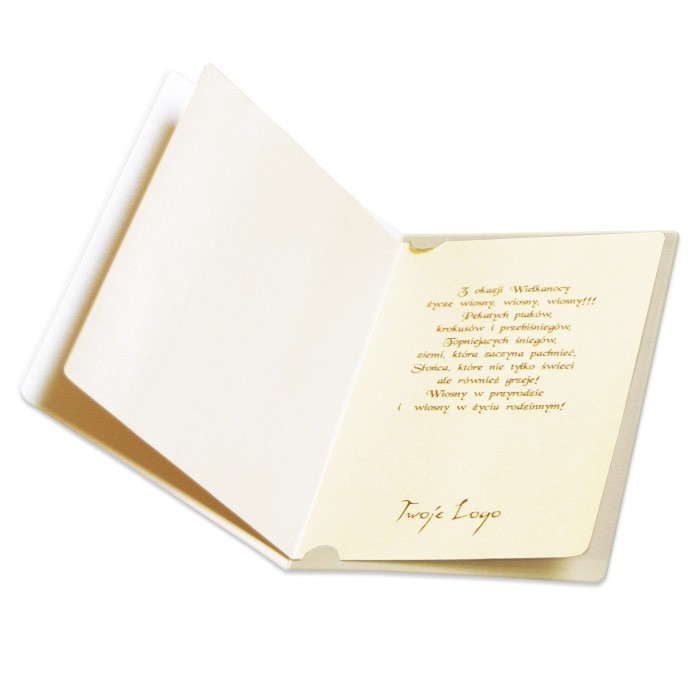 Z okazji Wielkanocy
życzę wiosny, wiosny, wiosny!!!
Pękatych pąków,
krokusów i przebiśniegów,
Topniejących śniegów,
ziemi, która zaczyna pachnieć,
Słońca, które nie tylko świeci
ale również grzeje!
Wiosny w przyrodzie
i wiosny w życiu rodzinnym!
Twoje Logo